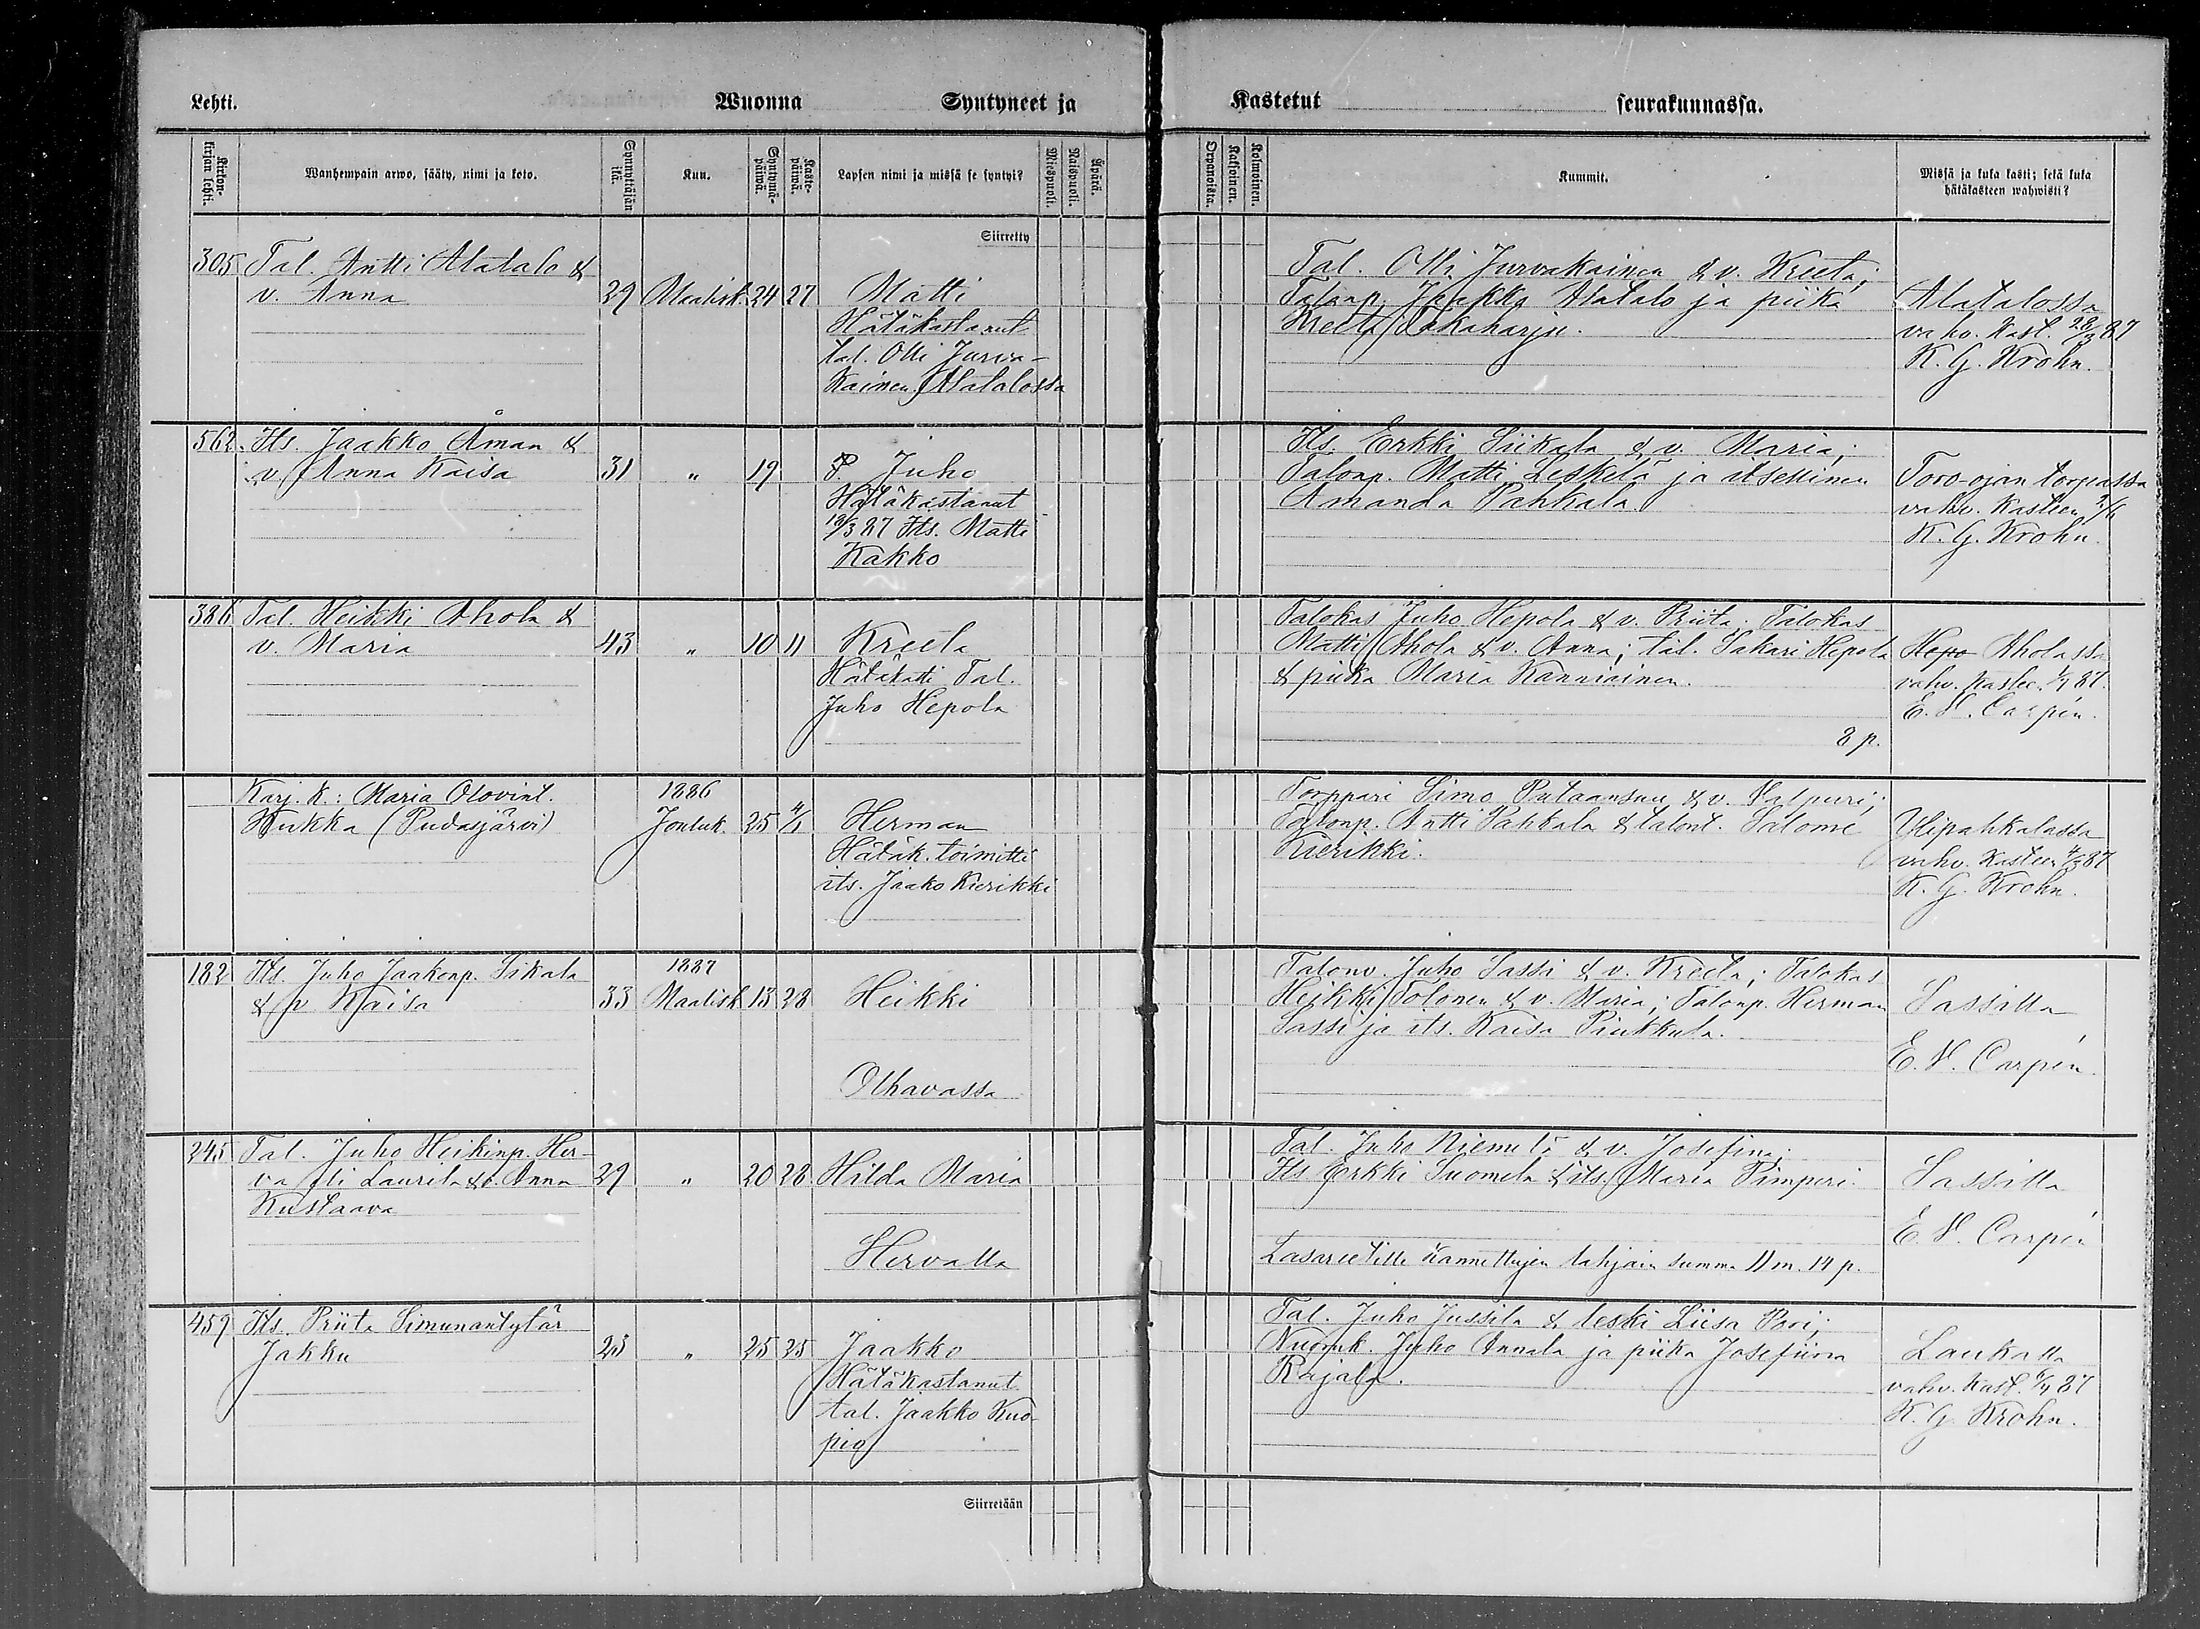 Lehti. Wuonna Syntyneet ja Kastetut seurakunnassa.
Kirkon-kirjan lehti. Wanhempain arwo, sääty, nimi ja koto. Synnyttäjän ikä. Kuu. Syntymä-päiwä. Kaste-päiwä. Lapsen nimi ja missä se syntyi? Miespuoli. Waimopuoli. Äpärä.
Orpanoista. Kaksoinen. Kolmoinen. Kummit. Missä ja kuka kasti; sekä kuka hätäkasteen wahwisti?
Siirretty
305 Tal. Antti Alatalo &
v. Anna 29 Maalisk. 24 27 Matti
Hätäkastanut
tal. Olli Jurva-
kainen Alatalossa
Tal. Olli Jurvakainen & v. Kreeta;
Talonp. Jaakko Alatalo ja piika
Kreeta Lakaharju.
Alatalossa
vahv. kast. 28/3 87
K. G. Krohn.
562. Its. Jaakko Åman &
v. Anna Kaisa 31 " 19 P. Juho
Hätäkastanut
19/3 87 Its. Matti
Kakko
Its. Erkki Siikala & v. Maria;
Talonp. Matti Leskelä ja itsellinen
Amanda Pahkala.
Toro-ojan torpassa
vahv. kasteen
K. G. Krohn
386 Tal. Heikki Ahola &
v. Maria 43 " 10 11 Kreeta
Hätäkasti Tal.
Juho Hepola
Talokas Juho Hepola & v. Priita; Talokas
Matti Ahola & v. Anna; tal. Sakari Hepola
& piika Maria Kanniainen.
8 p.
Hepo Aholassa
vahv. kastee. 1/4 87.
E. V. Carpén.
Karj. k.: Maria Olovint.
Hukka (Pudasjärvi) 1886
Jouluk. 25 4/1 Herman
Hätäk. toimitti
its. Jaako Kierikki
Torppari Simo Putaansuu & v. Valpuri;
Talonp. Antti Pahkala & talont. Salome
Kierikki.
Ylipahkalassa
vahv. kasteen 4/3 87
K. G. Krohn.
182 Its. Juho Jaakonp. Sikala
& v. Kaisa 33 1887
Maalisk. 13 28 Heikki
Olhavassa
Talonv. Juho Sassi & v. Kreeta; Talokas
Heikki Tolonen & v. Maria; Talonp. Herman
Sassi ja its. Kaisa Piukkula.
Sassilla
E. V. Carpén
245 Tal. Juho Heikinp. Her-
va eli Laurila & v. Anna 29 " 20 28 Hilda Maria
Kustaava
Hervalla
Tal. Juho Niemelä & v. Josefina;
Its. Erkki Suomela & its. Maria Pimperi.
Lasareetille kannettujen lahjain summa 11 m. 14 p.
Sassilla
E. V. Carpén
459 Its. Priita Simunantytär
Jakku 25 " 25 25 Jaakko
Hätäkastanut
tal. Jaakko Kuo-
pio
Tal. Juho Jussila & leski Liisa Pori;
Nuormk. Juho Annala ja piika Josefiina
Rajala.
Laukalla
vahv. kast. 4/4 87
K. G. Krohn.
Siirretään